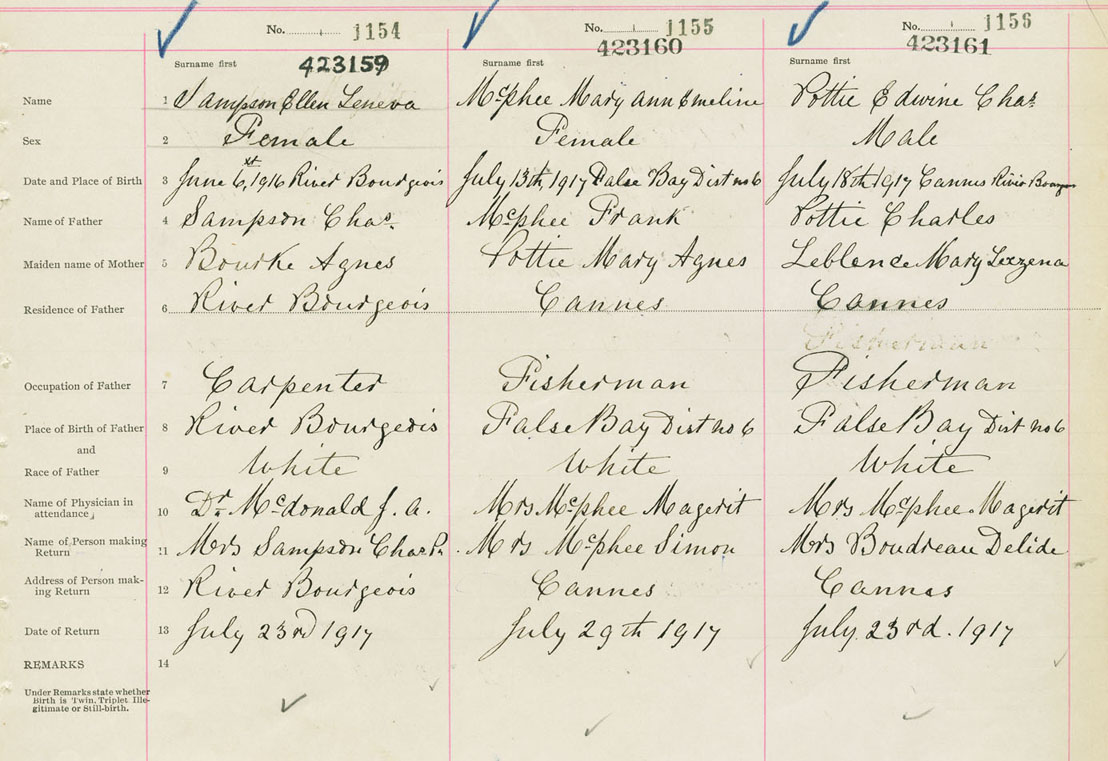 No. 1154 No. 1155 No. 1156
423159 423160 423161
Surname first Surname first Surname first
Name 1 Sampson Ellen Leneva McPhee Mary ann Emeline Pottie Edwine Chas.
Sex 2 Female Female Male
Date and Place of Birth 3 June 6, xt 1916 River Bourgeois July 13th, 1917 False Bay Dist no 6 July 18th 1917 Cannes River Bourgeois
Name of Father 4 Sampson Chas. McPhee Frank Pottie Charles
Maiden name of Mother 5 Bourke Agnes Pottie Mary Agnes Leblence Mary Lezzena
Residence of Father 6 River Bourgeois Cannes Cannes
Fisherman
Occupation of Father 7 Carpenter Fisherman Fisherman
Place of Birth of Father 8 River Bourgeois False Bay Dist no 6 False Bay Dist no 6
and
Race of Father 9 White White White
Name of Physician in
attendance, 10 Dr. McDonald J. A. Mrs. McPhee Magerit Mrs McPhee. Magerit
Name of Person making
Return 11 Mrs Sampson Chas Mrs McPhee Simon Mrs Boudreau Delide
Address of Person mak-
ing Return 12 River Bourgeois Cannes Cannes
Date of Return 13 July 23rd 1917 July 29th 1917 July. 23rd. 1917
REMARKS 14
Under Remarks state whether
Birth is Twin, Triplet Ille-
gitimate or Still-birth.